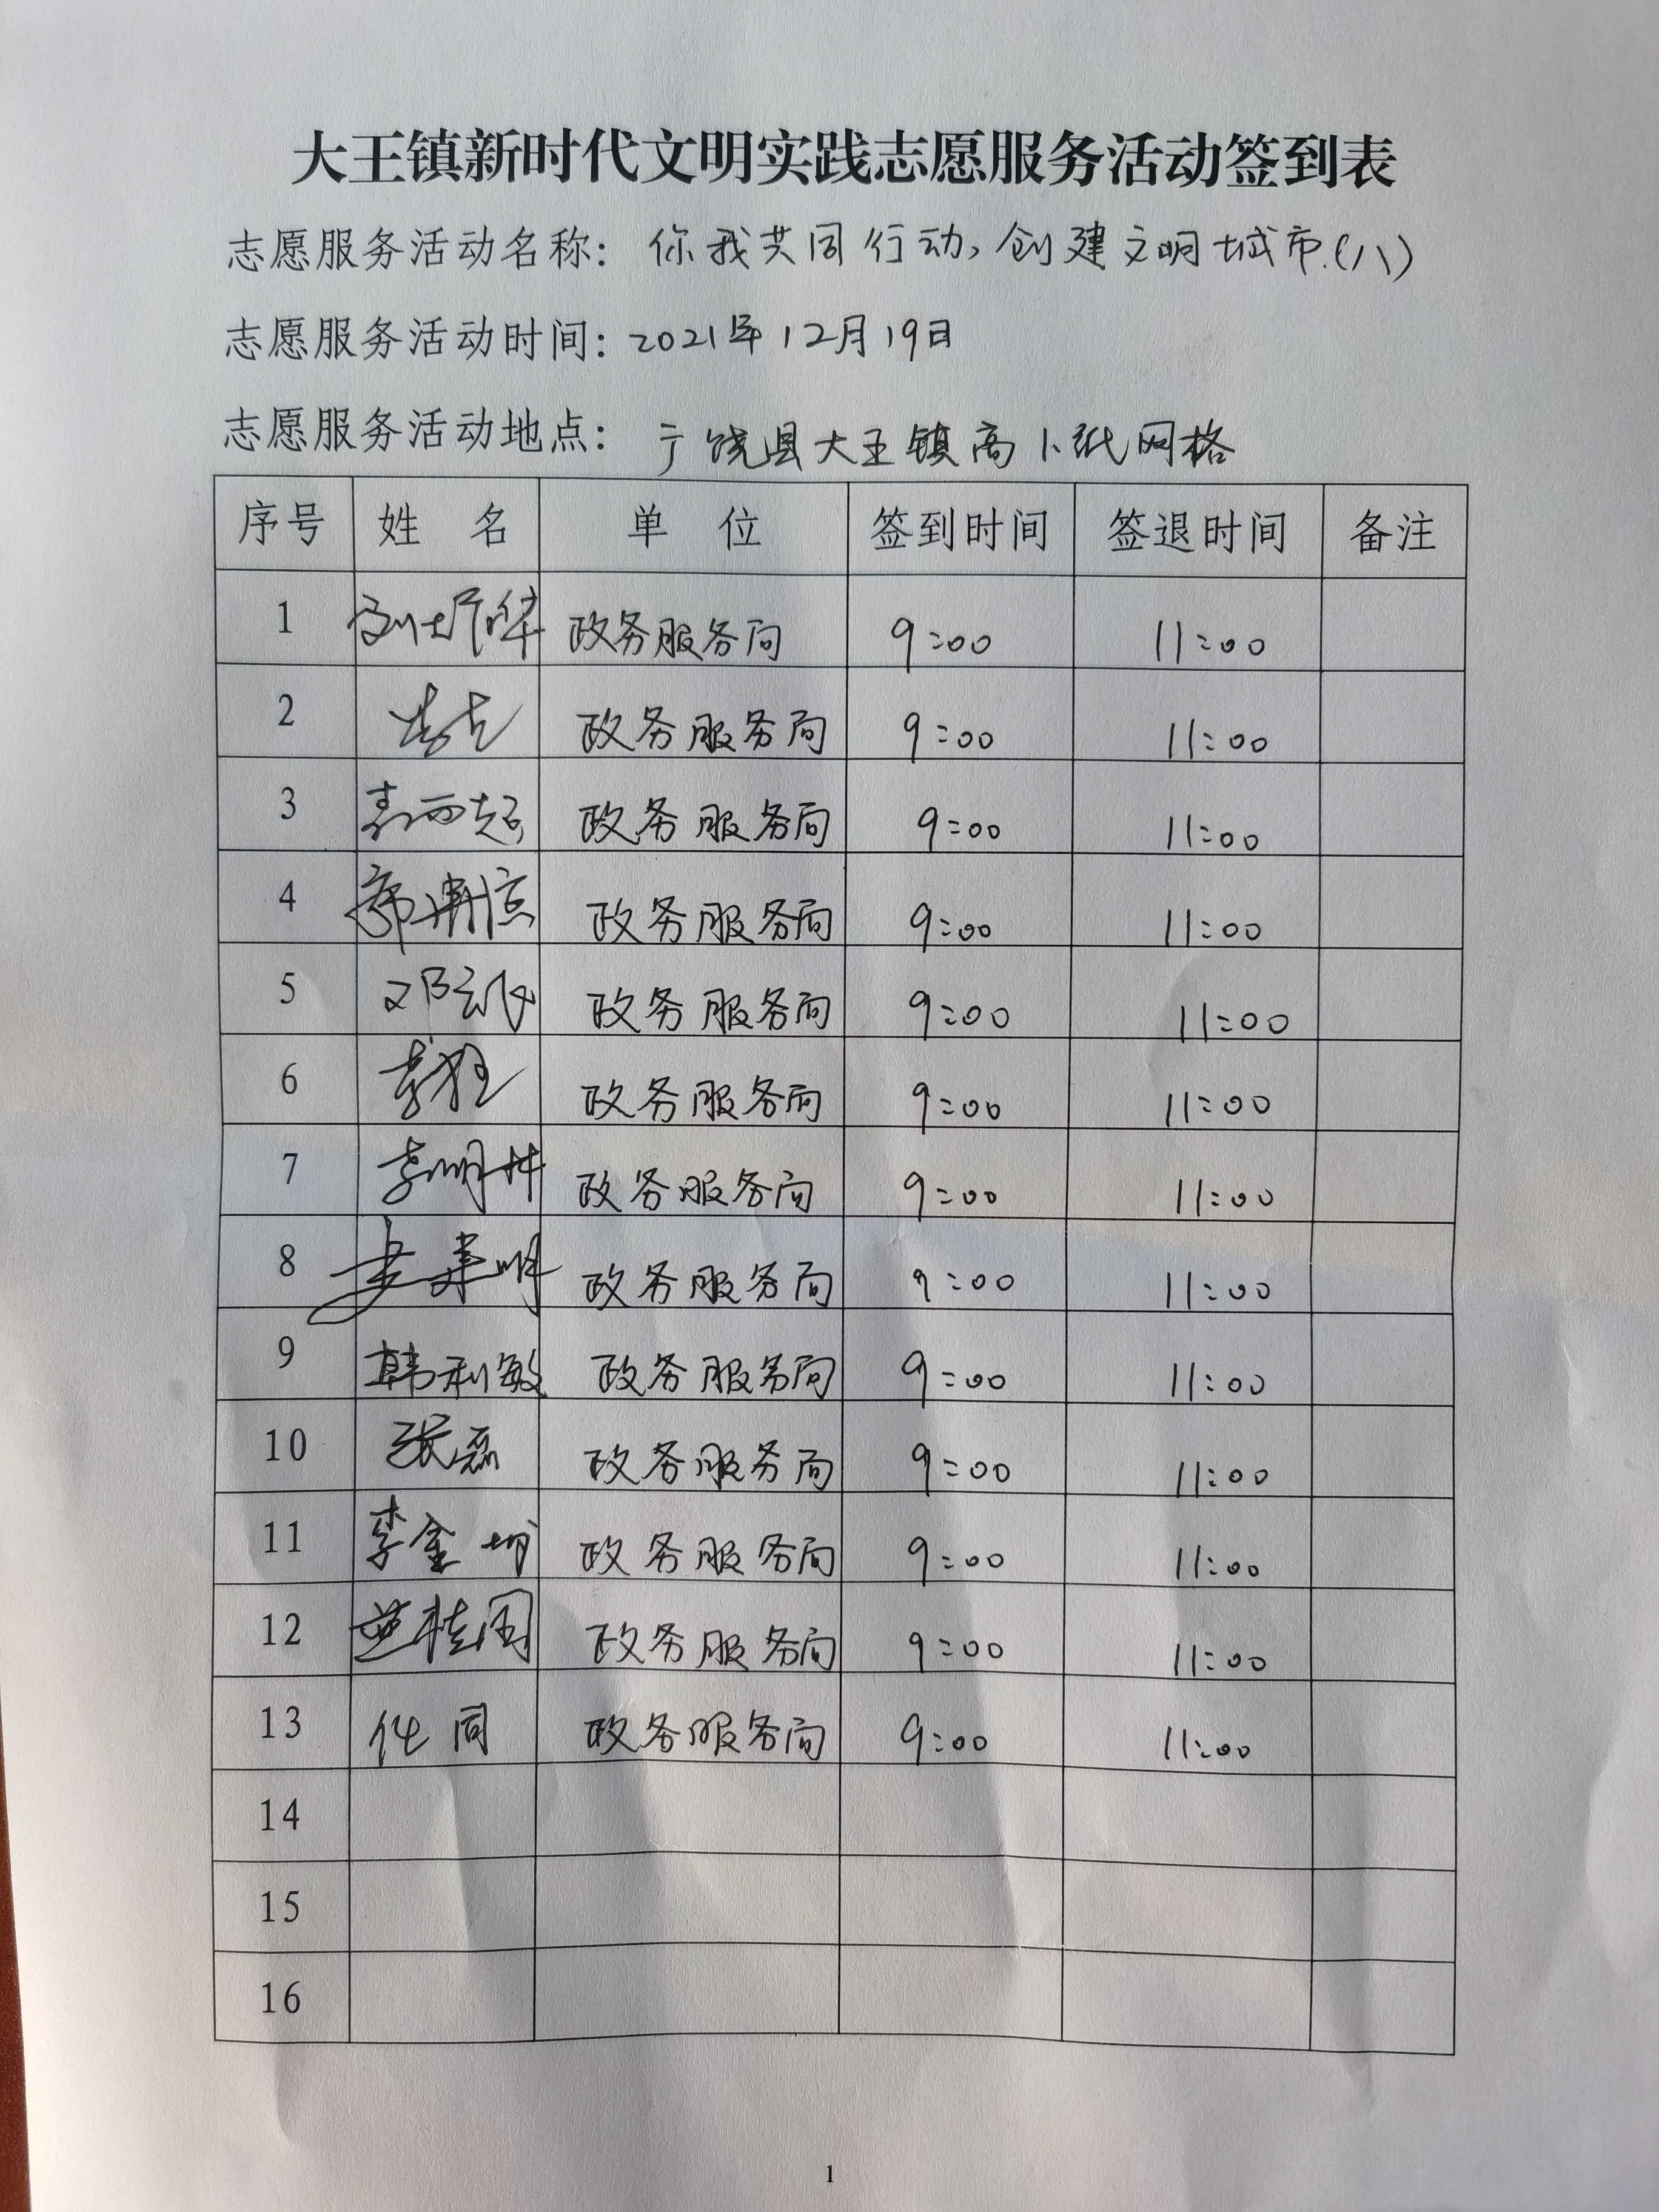 大王镇新时代文明实践志愿服务活动签到表
志愿服务活动名称：你我共同行动，创建文明城市.（八）
志愿服务活动时间：2021年12月19日
志愿服务活动地点：广饶县大王镇高小纸网格
序号 姓 名 单 位 签到时间 签退时间 备注
1 政务服务局 9:00 11:00
2 政务服务局 9:00 11:00
3 政务服务局 9:00 11:00
4 政务服务局 9:00 11:00
5 政务服务局 9:00 11:00
6 政务服务局 9:00 11:00
7 政务服务局 9:00 11:00
8 政务服务局 9:00 11:00
9 韩利敏 政务服务局 9:00 11:00
10 张磊 政务服务局 9:00 11:00
11 政务服务局 9:00 11:00
12 政务服务局 9:00 11:00
13 政务服务局 9:00 11:00
14
15
16
1